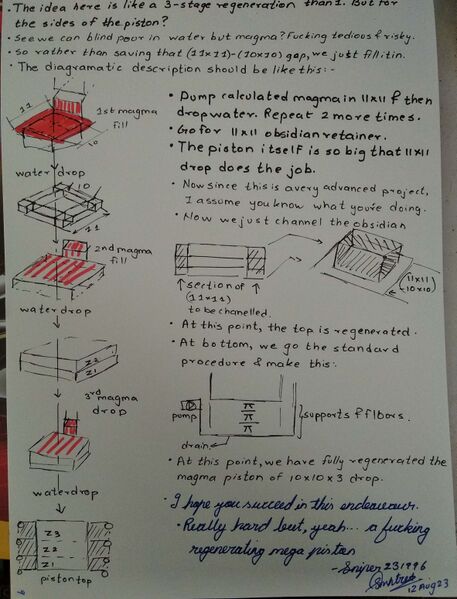 • The idea here is like a 3-stage regeneration than 1. But for
the sides of the piston?
• See we can blind pour in water but magma? Fucking tedious & risky.
• So rather than saving that (11x11)-(10x10) gap, we just fill it in.
• The diagramatic description should be like this:-
11
10
1st magma
fill
water drop
10
11
2nd magma
fill
water drop
Z2
Z1
3rd
magma
drop
water drop
Z3
Z2
Z1
piston top
• Dump calculated magma in 11x11 & then
drop water. Repeat 2 more times.
• Go for 11x11 obsidian retainer.
• The piston itself is so big that 11x11
drop does the job.
• Now since this is a very advanced project,
I assume you know what you're doing.
• Now we just channel the obsidian
section of
(11x11)
to be chanelled.
(11x11)
10x10)
• At this point, the top is regenerated.
• At bottom, we go the standard
procedure & make this:
pump
drain
supports & floors.
• At this point, we have fully regenerated the
magma piston of 10x10x3 drop.
• I hope you succeed in this endeavour.
• Really hard but, yeah... a fucking
regenerating mega piston
- Sniper231996
12 Aug 23